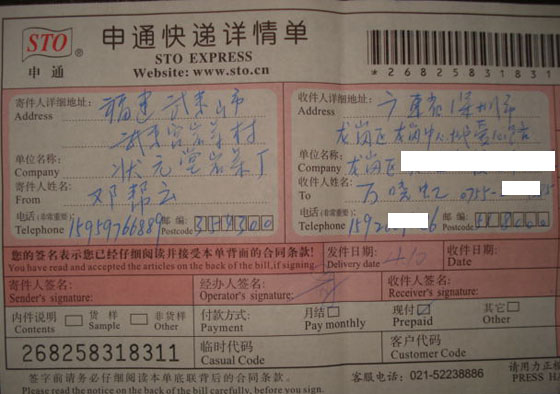 STO 申通快递详情单
申通 STO EXPRESS
Website: www.sto.cn
*268258318311
寄件人详细地址: 福建 武夷山市
Address 武夷宫岩茶村
单位名称: 状元堂岩茶厂
Company
寄件人姓名: 邓帮云
From
电话(非常重要): 15959766889 邮编: 354300
Telephone Postcode
收件人详细地址: 广东省深圳市
Address 龙岗区龙岗中心城
单位名称: 龙岗区
Company
收件人姓名: 万晓虹 0755-
To
电话(非常重要): 159 6 邮编: 518000
Telephone Postcode
您的签名表示您已经仔细阅读并接受本单背面的合同条款!
You have read and accepted the articles on the back of the bill,if signing.
发件日期: 4.10
Delivery date
收件日期:
Date
寄件人签名: 经办人签名: 收件人签名:
Sender's signature: Operator's signature: Receiver's signature:
内件说明 货样 非货样 付款方式: 月结 现付 其它
Contents Sample Other Payment Pay monthly Prepaid Other
268258318311 临时代码 客户代码
Casual Code Customer Code
签字前请务必仔细阅读本单底联背后的合同条款。 客服电话: 021-52238886 请用力正楷
Please read the notice on the back of bill carefully, before you sign. PRESS HA